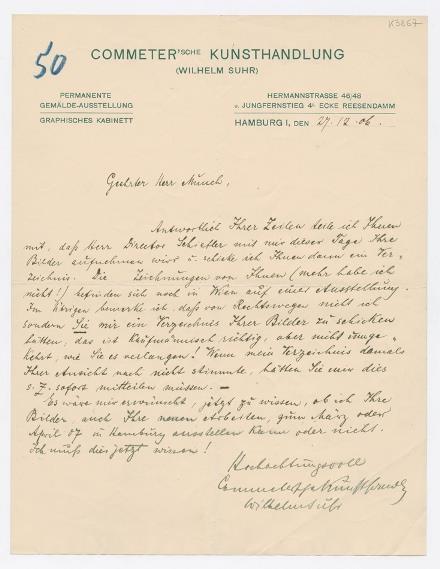 K3867
50
COMMETER'SCHE KUNSTHANDLUNG
(WILHELM SUHR)
PERMANENTE
GEMÄLDE-AUSSTELLUNG
GRAPHISCHES KABINETT
HERMANNSTRASSE 46/48
v. JUNGFERNSTIEG 4t ECKE REESENDAMM
HAMBURG I, DEN 27.12.06.
Geehrter Herr Munch,
Antwortlich Ihrer Zeilen teile ich Ihnen
mit, daß Herr Director Schiefler mit mir dieser Tage Ihre
Bilder aufnehmen wird u. schicke ich Ihnen dann ein Ver=
zeichnis. Die Zeichnungen von Ihnen (mehr habe ich
nicht!) befinden sich noch in Wien auf einer Ausstellung.
Im Übrigen bemerke ich, daß von Rechtswegen nicht ich
sondern Sie mir ein Verzeichnis Ihrer Bilder zu schicken
hätten, das ist kaufmännisch richtig, aber nicht umge=
kehrt, wie Sie es verlangen! Wenn mein Verzeichnis damals
Ihrer Ansicht nach nicht stimmte, hätten Sie mir dies
s. Z. sofort mitteilen müssen. —
Es wäre mir erwünscht, jetzt zu wissen, ob ich Ihre
Bilder auch Ihre neuen Arbeiten, zum März oder
April 07 in Hamburg ausstellen kann oder nicht.
Ich muß dies jetzt wissen!
Hochachtungsvoll
Commeter'sche Kunsthandlg
Wilhelm Suhr